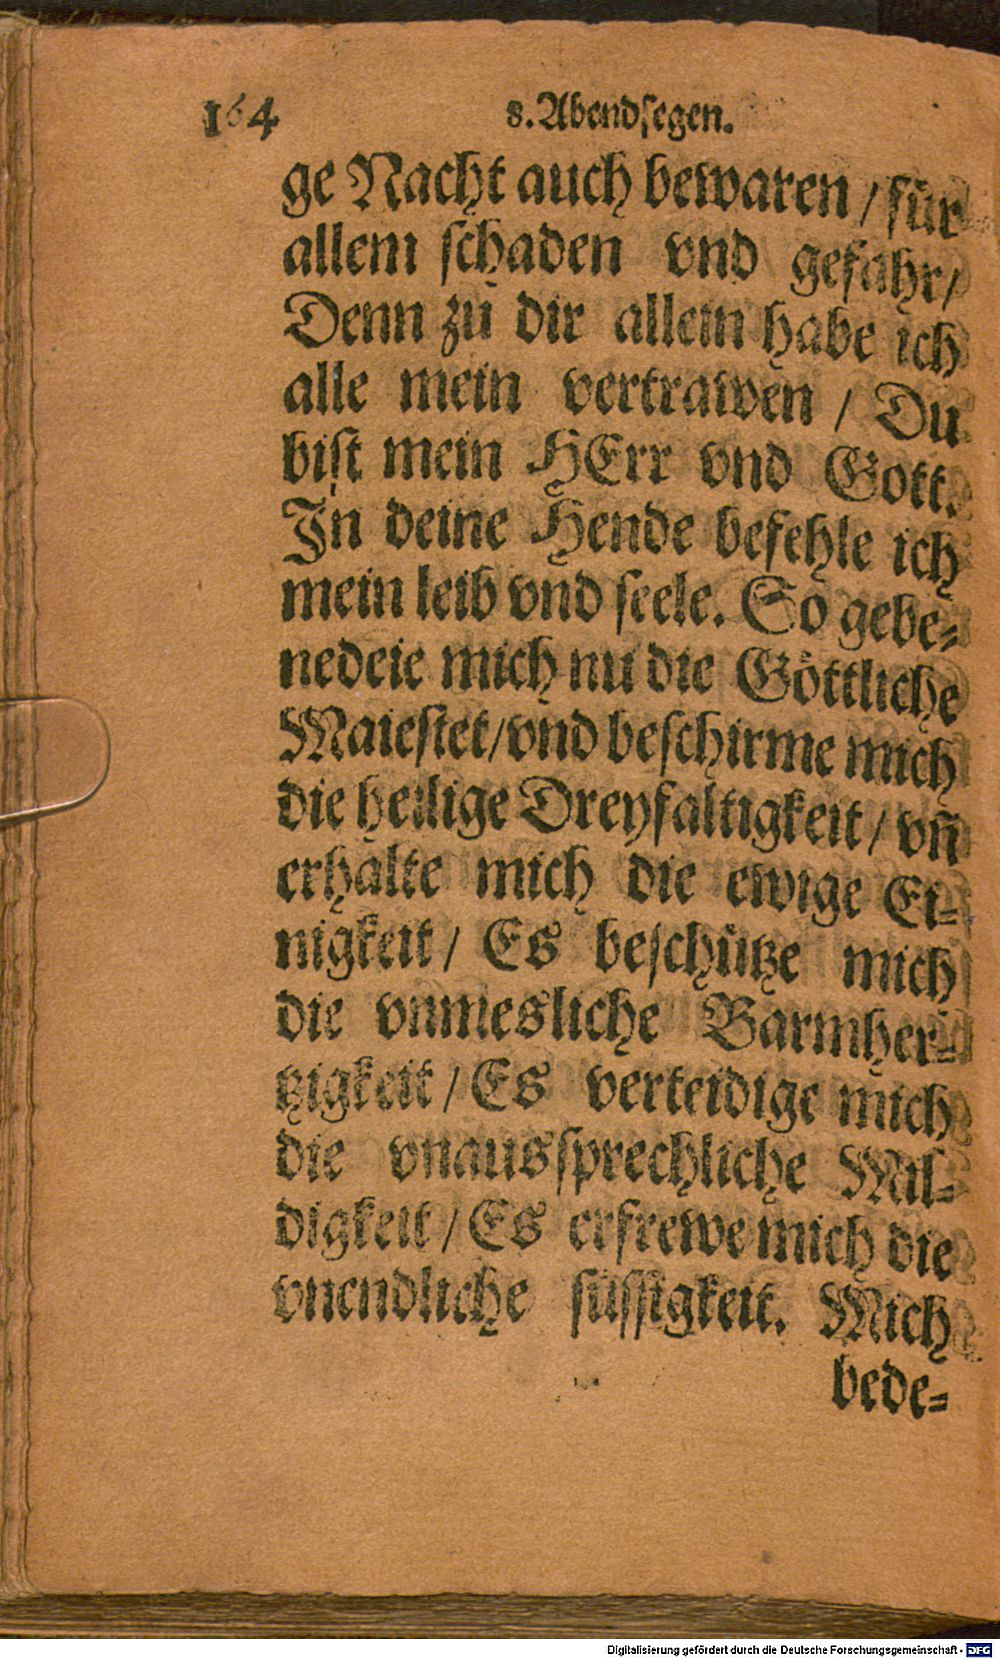 164
8. Abendſegen.
ge Nacht auch bewaren / für
allem ſchaden vnd gefahr /
Denn zu dir allein habe ich
alle mein vertrawen / Du
biſt mein HErr vnd Gott.
In deine Hende befehle ich
mein leib vnd ſeele. So gebe⸗
nedeie mich nu die Göttliche
Maieſtet / vnd beſchirme mich
die heilige Dreyfaltigkeit / vn̄
erhalte mich die ewige Ei⸗
nigkeit / Es beſchütze mich
die vnmesliche Barmher⸗
tzigkeit / Es verteidige mich
die vnausſprechliche Mil⸗
digkeit / Es erfrewe mich die
vnendliche ſüſſigkeit. Mich
bede⸗
Digitalisierung gefördert durch die Deutsche Forschungsgemeinschaft - DFG